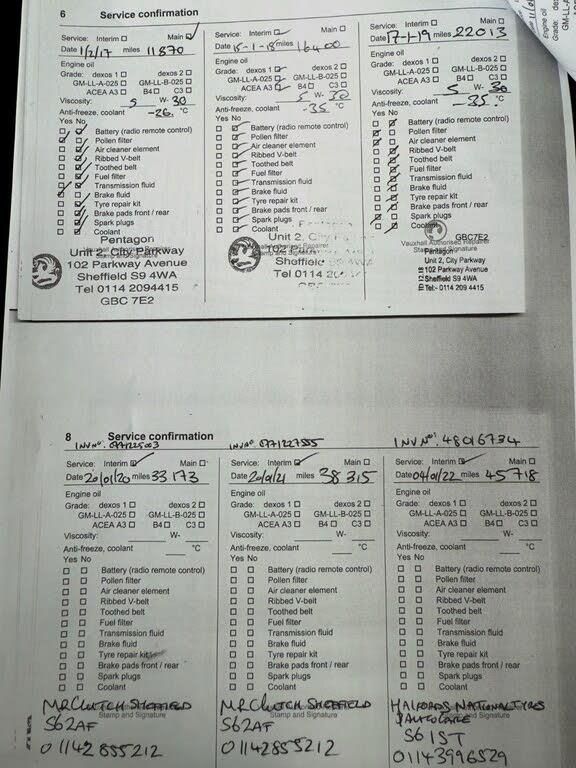 6 Service confirmation
Service: Interim ☐ Main ☑
Date 1/2/17 miles 11870
Engine oil
Grade: dexos 1 ☐ dexos 2 ☐
GM-LL-A-025 ☐ GM-LL-B-025 ☐
ACEA A3 ☐ B4 ☐ C3 ☐
Viscosity: 5 W- 30
Anti-freeze, coolant -26 °C
Yes No
Battery (radio remote control)
Pollen filter
Air cleaner element
Ribbed V-belt
Toothed belt
Fuel filter
Transmission fluid
Brake fluid
Tyre repair kit
Brake pads front / rear
Spark plugs
Coolant
Pentagon
Unit 2, City Parkway
102 Parkway Avenue
Sheffield S9 4WA
Tel 0114 2094415
GBC 7E2
Service: Interim ☑ Main ☐
Date 15-1-18 miles 16400
Engine oil
Grade: dexos 1 ☐ dexos 2 ☐
GM-LL-A-025 GM-LL-B-025 ☐
ACEA A3 B4 ☐ C3 ☐
Viscosity: 5 W- 30
Anti-freeze, coolant -35 °C
Yes No
Battery (radio remote control)
Pollen filter
Air cleaner element
Ribbed V-belt
Toothed belt
Fuel filter
Transmission fluid
Brake fluid
Tyre repair kit
Brake pads front / rear
Spark plugs
Coolant
Unit 2, City
Sheffield
Tel 0114
Service: Interim Main ☐
Date 17-1-19 miles 22013
Engine oil
Grade: dexos 1 ☐ dexos 2 ☐
GM-LL-A-025 ☐ GM-LL-B-025 ☐
ACEA A3 ☐ B4 ☐ C3 ☐
Viscosity: 5 W- 30
Anti-freeze, coolant -35 °C
Yes No
Battery (radio remote control)
Pollen filter
Air cleaner element
Ribbed V-belt
Toothed belt
Fuel filter
Transmission fluid
Brake fluid
Tyre repair kit
Brake pads front / rear
Spark plugs
Coolant
GBC7E2
Vauxhall Authorised Repairer
Stamp and Signature
Pentagon
Unit 2, City Parkway
102 Parkway Avenue
Sheffield S9 4WA
Tel:- 0114 209 4415
8 Service confirmation
Service: Interim ☑ Main ☐
Date 20/01/20 miles 33173
Engine oil
Grade: dexos 1 ☐ dexos 2 ☐
GM-LL-A-025 ☐ GM-LL-B-025 ☐
ACEA A3 ☐ B4 ☐ C3 ☐
Viscosity: W-
Anti-freeze, coolant °C
Yes No
Battery (radio remote control)
Pollen filter
Air cleaner element
Ribbed V-belt
Toothed belt
Fuel filter
Transmission fluid
Brake fluid
Tyre repair kit
Brake pads front / rear
Spark plugs
Coolant
MR CLUTCH SHEFFIELD
Stamp and Signature
S62AF
01142855212
INV Nº. 0771227555
Service: Interim ☑ Main ☐
Date 20/01/21 miles 38315
Engine oil
Grade: dexos 1 ☐ dexos 2 ☐
GM-LL-A-025 ☐ GM-LL-B-025 ☐
ACEA A3 ☐ B4 ☐ C3 ☐
Viscosity: W-
Anti-freeze, coolant °C
Yes No
Battery (radio remote control)
Pollen filter
Air cleaner element
Ribbed V-belt
Toothed belt
Fuel filter
Transmission fluid
Brake fluid
Tyre repair kit
Brake pads front / rear
Spark plugs
Coolant
MR CLUTCH SHEFFIELD
Stamp and Signature
S62AF
01142855212
INV Nº: 48016734
Service: Interim ☑ Main ☐
Date 04/01/22 miles 45718
Engine oil
Grade: dexos 1 ☐ dexos 2 ☐
GM-LL-A-025 ☐ GM-LL-B-025 ☐
ACEA A3 ☐ B4 ☐ C3 ☐
Viscosity: W-
Anti-freeze, coolant °C
Yes No
Battery (radio remote control)
Pollen filter
Air cleaner element
Ribbed V-belt
Toothed belt
Fuel filter
Transmission fluid
Brake fluid
Tyre repair kit
Brake pads front / rear
Spark plugs
Coolant
HALFORDS NATIONAL TYRES
Stamp and Signature
& AUTOCARE
S6 1ST
01143996529